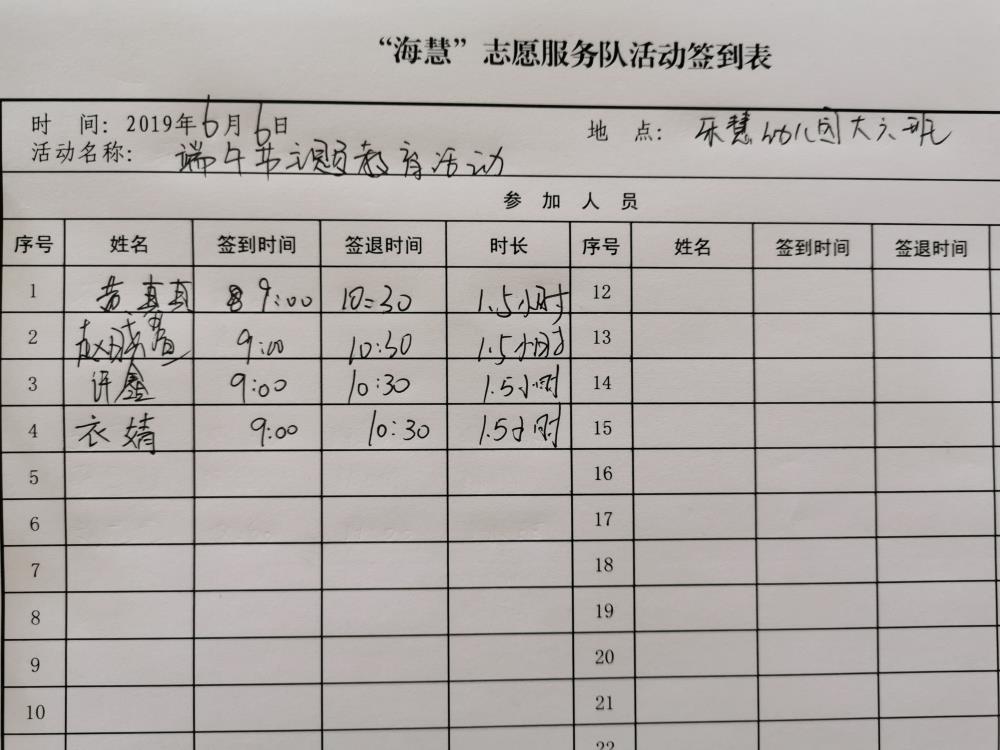 “海慧”志愿服务队活动签到表
时 间：2019年6月6日 地 点：乐慧幼儿园大六班
活动名称：端午节主题教育活动
参 加 人 员
序号 姓名 签到时间 签退时间 时长 序号 姓名 签到时间 签退时间
1 真真 9:00 10:30 1.5小时 12
2 赵 9:00 10:30 1.5小时 13
3 许鑫 9:00 10:30 1.5小时 14
4 衣婧 9:00 10:30 1.5小时 15
5 16
6 17
7 18
8 19
9 20
10 21
22